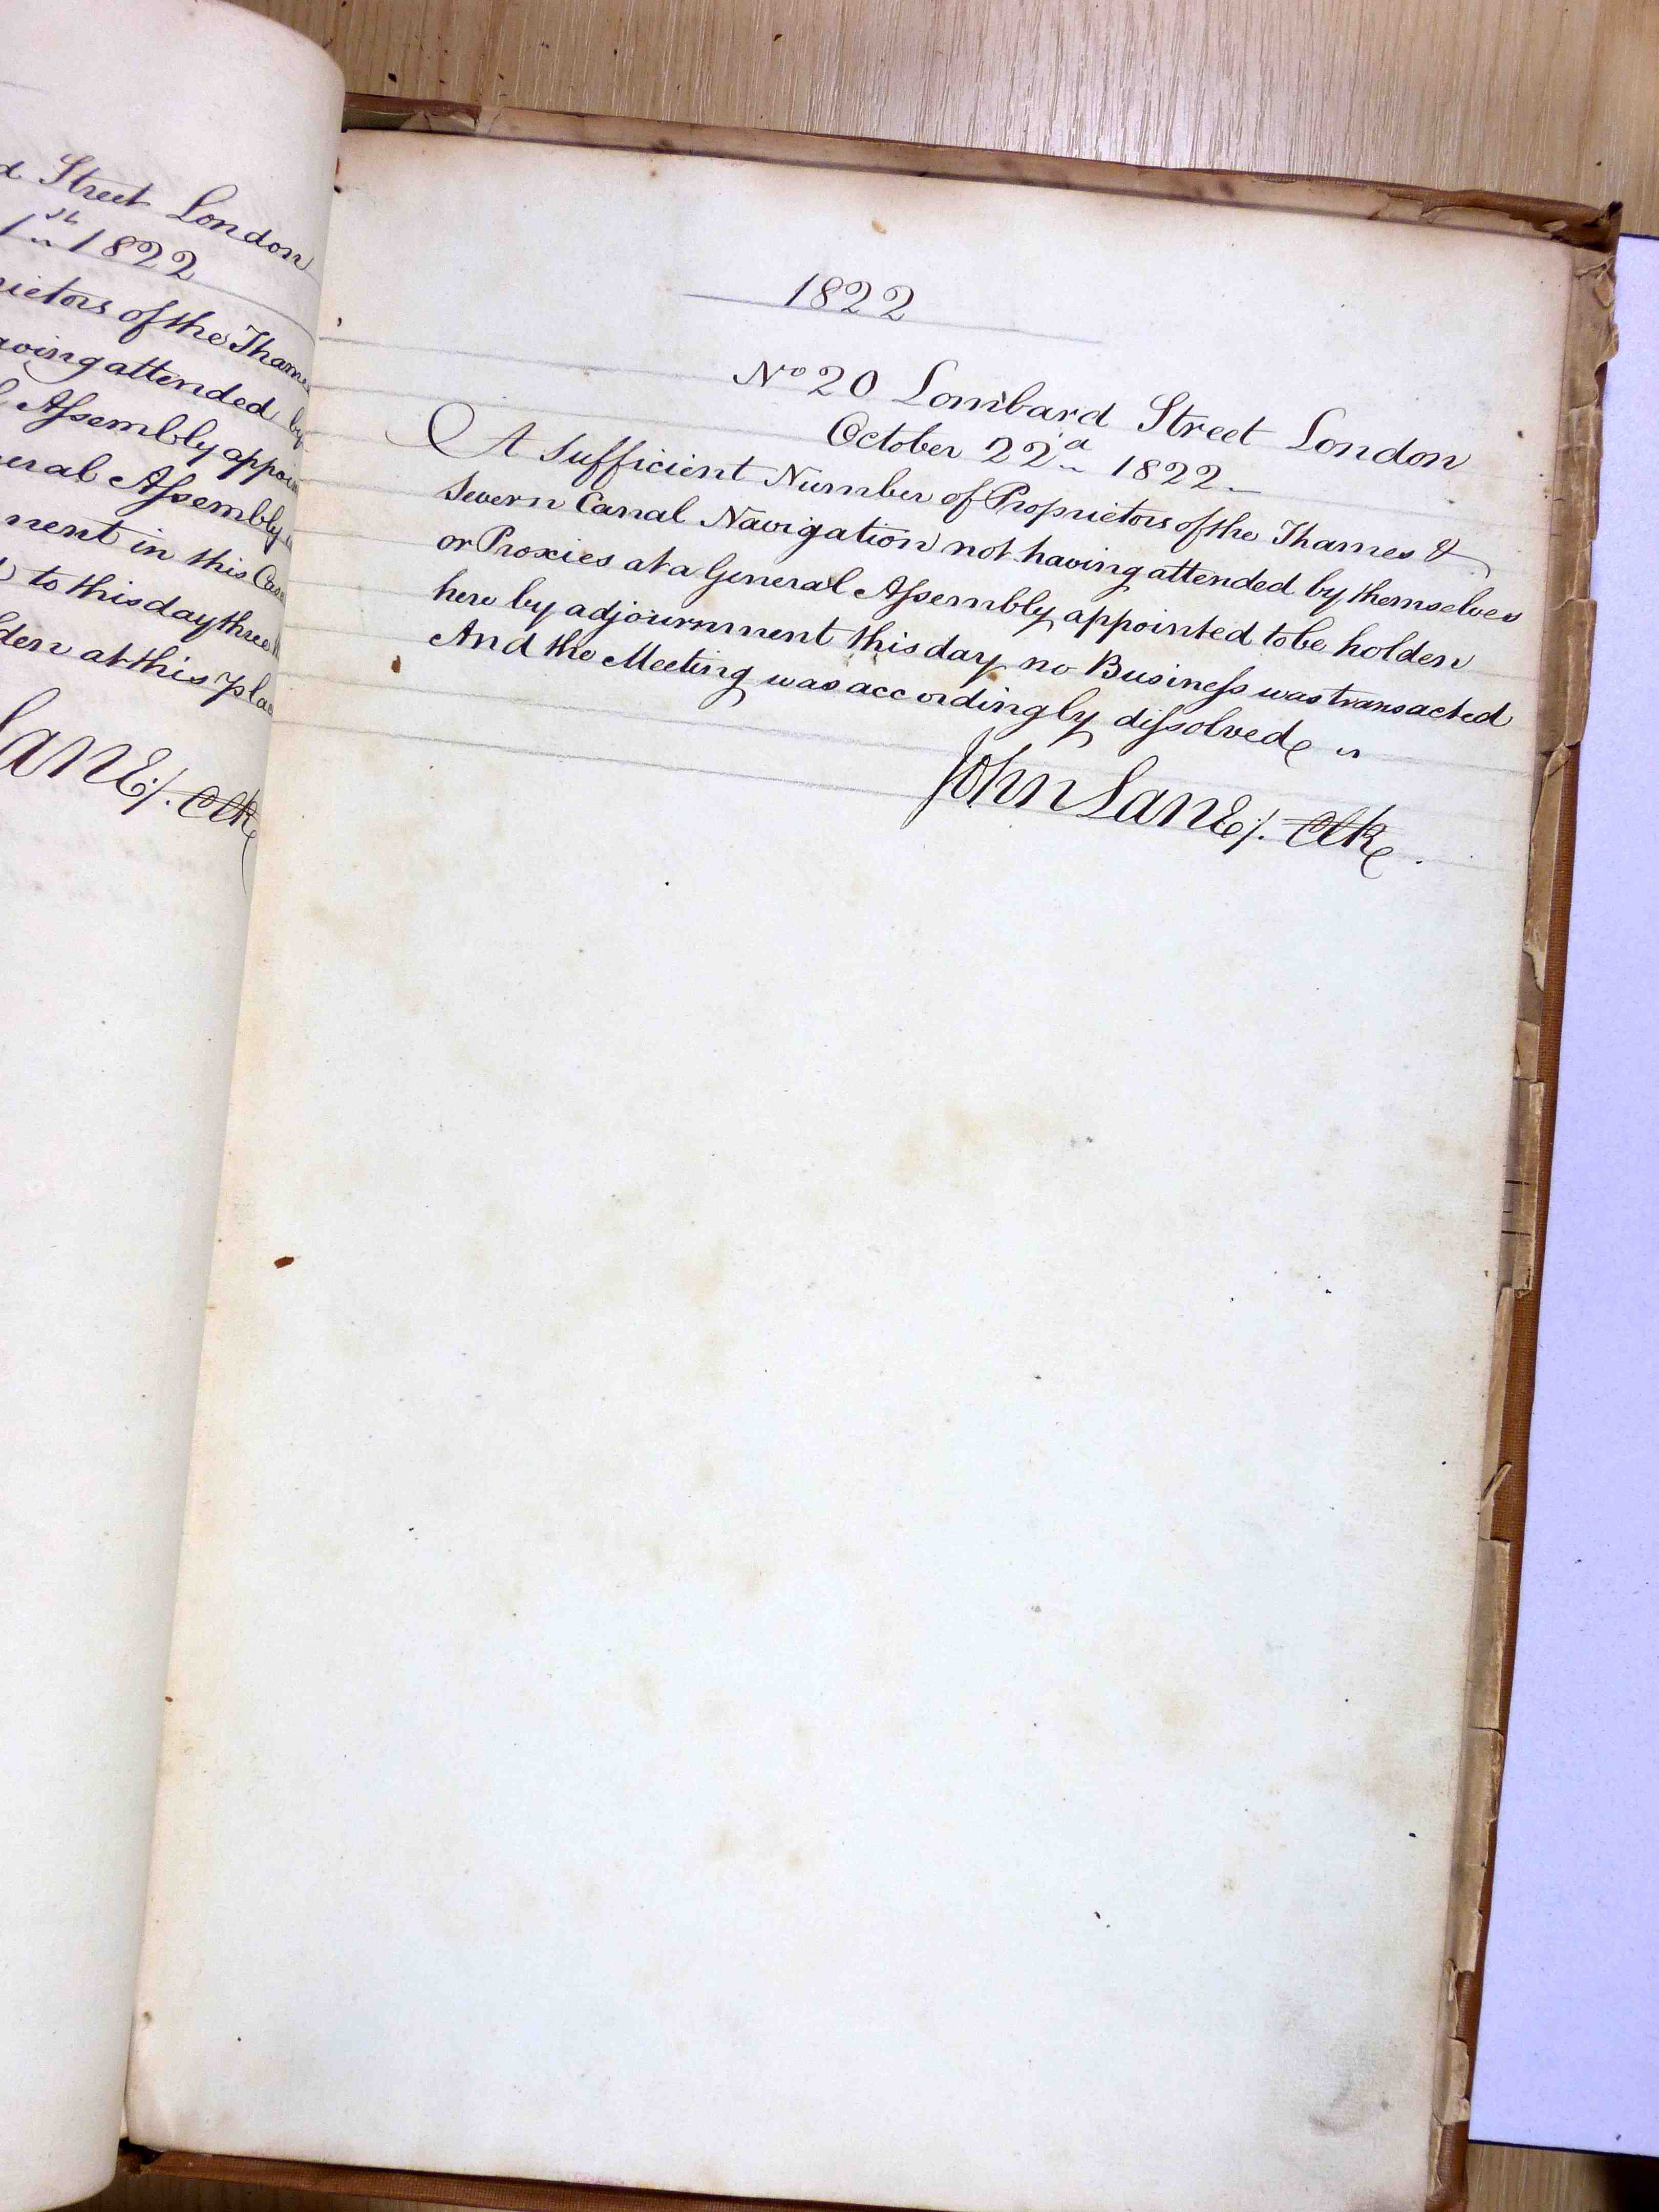 d Street London
1st 1822
rietors of the Thames
aving attended by
l Assembly appoin
eral Assembly
nment in this Case
to this day three
lden at this place
Lane Clk
1822
No 20 Lombard Street London
October 22d 1822
A Sufficient Number of Proprietors of the Thames &
Severn Canal Navigation not having attended by themselves
or Proxies at a General Assembly appointed to be holden
here by adjournment this day no Business was transacted
And the Meeting was accordingly dissolved
John Lane Clk